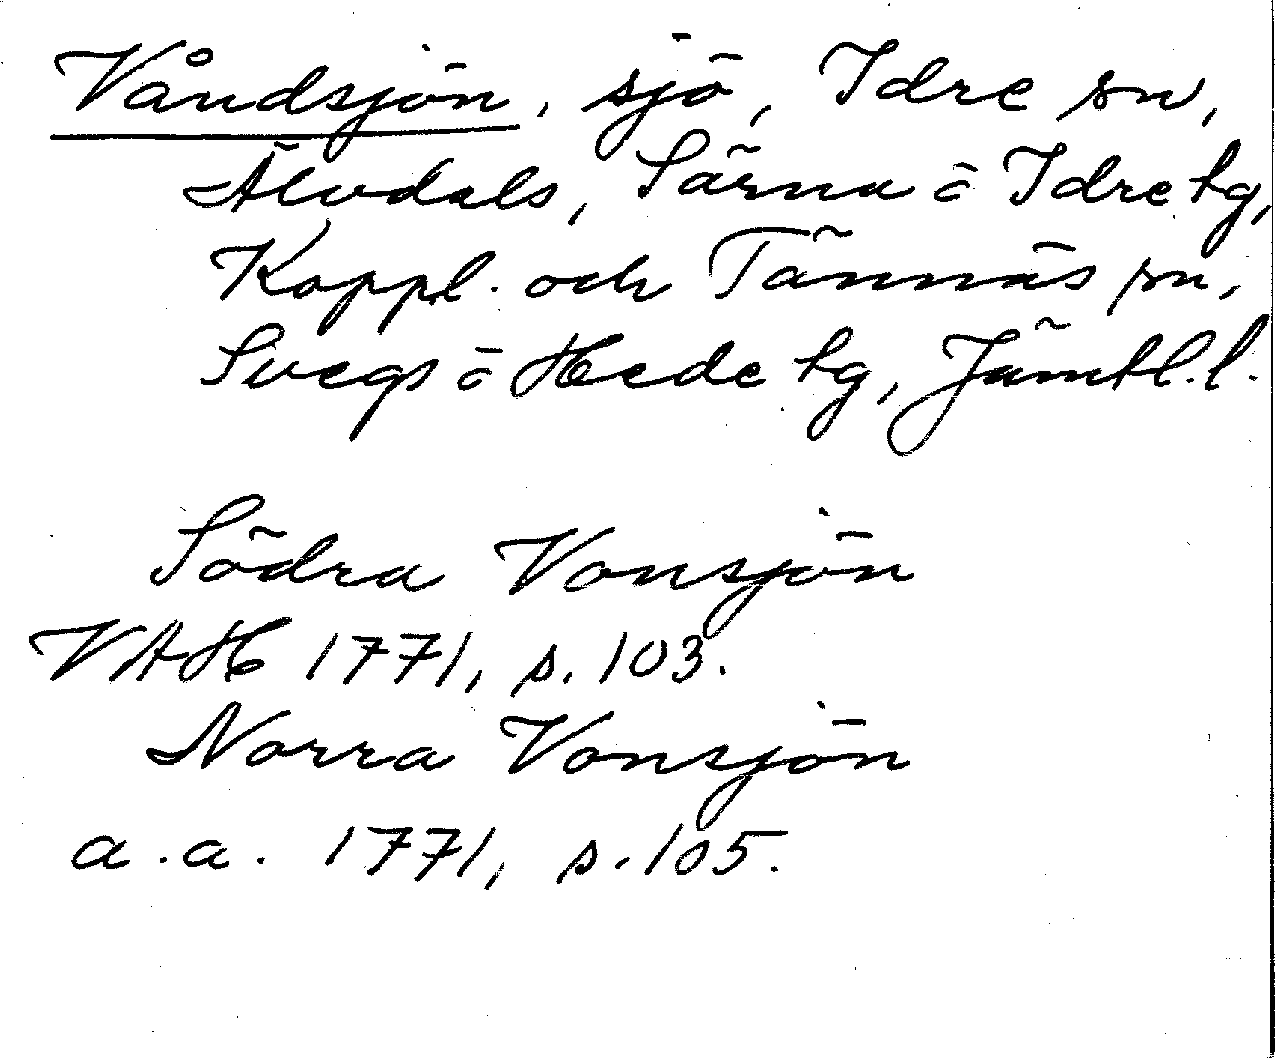 Våndsjön, sjö, Idre sn,
Älvdals, Särna o Idre tg,
Koppl. och Tännäs sn,
Svegs o Hede tg, Jämtl. l.
Södra Vonsjön
VAH 1771, s. 103.
Norra Vonsjön
a.a. 1771, s. 105.